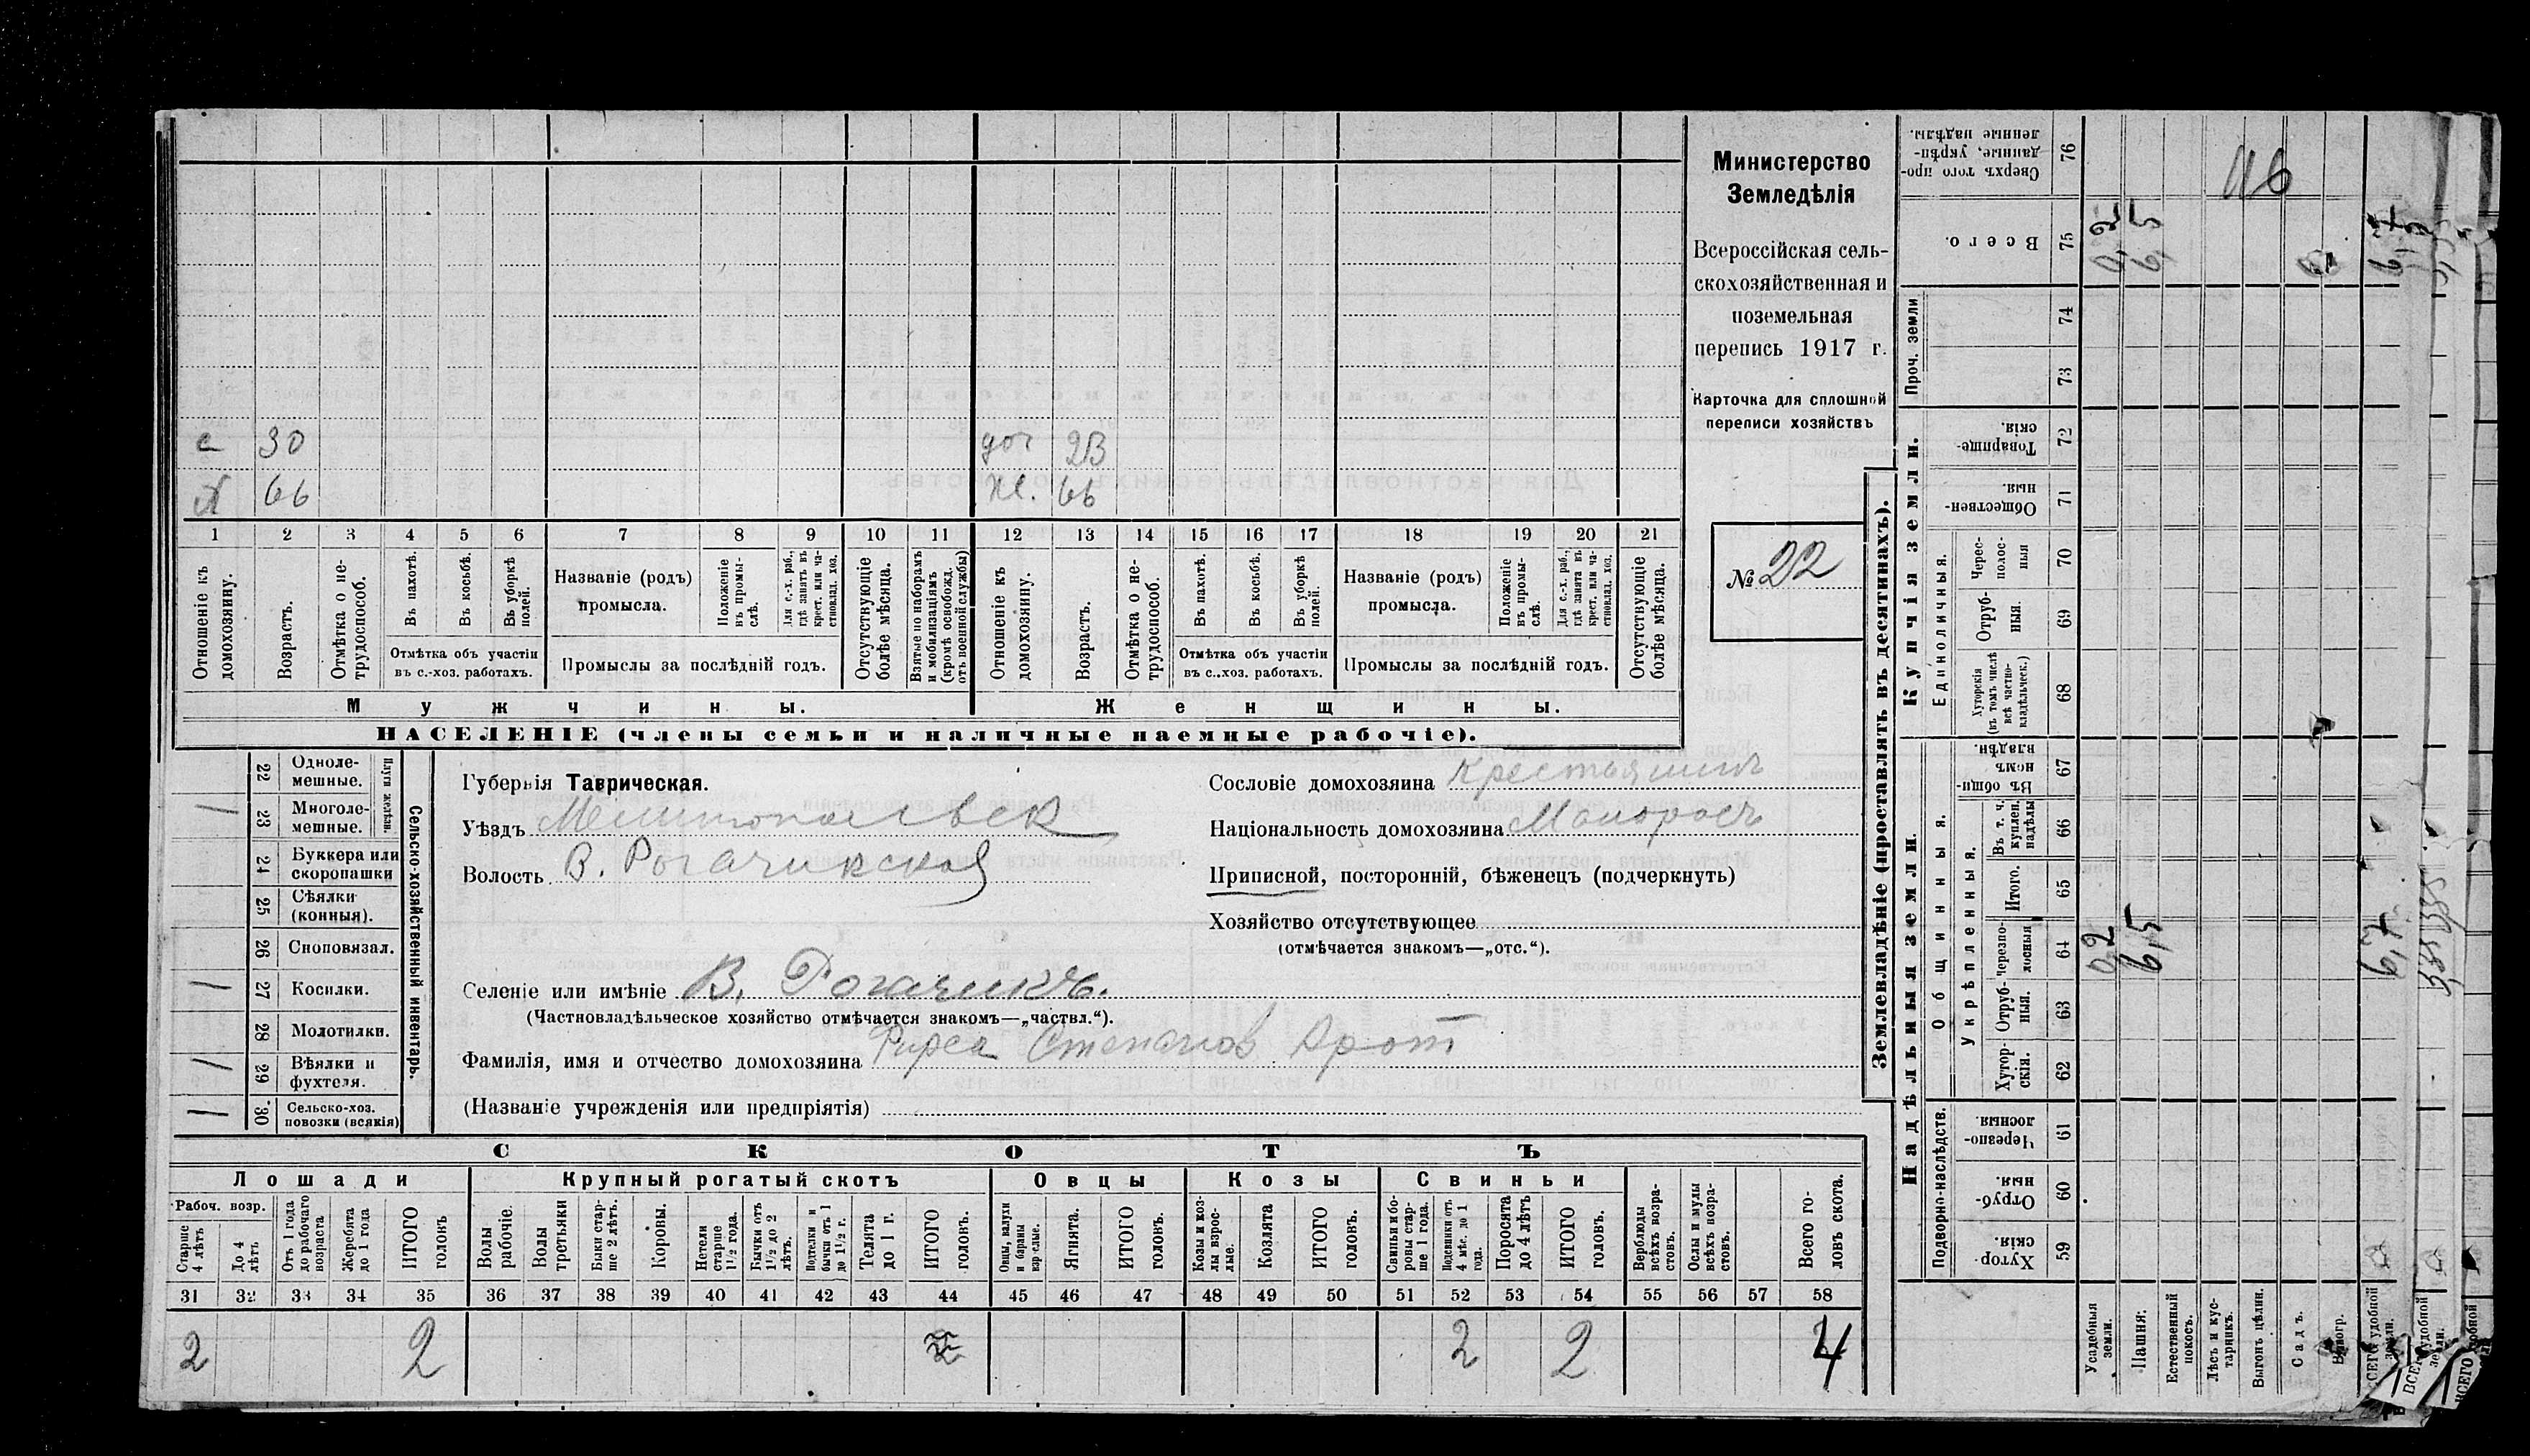 с 30 доч 23
Х 66 ж. 66
1 2 3 4 5 6 7 8 9 10 11 12 13 14 15 16 17 18 19 20 21
Отношеніе къ домохозяину.
Возрастъ.
Отмѣтка о не-
трудоспособ.
Въ пахотѣ.
Въ косьбѣ.
Въ уборкѣ
полей.
Отмѣтка объ участіи
въ с.-хоз. работахъ.
Названіе (родъ)
промысла.
Положеніе
въ промы-
слѣ.
Для с.-х. раб.,
гдѣ занятъ въ
крест. или ча-
стновлад. хоз.
Промыслы за послѣдній годъ.
Отсутствующіе
болѣе мѣсяца.
Взятые по наборамъ
и мобилизаціямъ
(кромѣ освобожд.
отъ военной службы)
Отношеніе къ
домохозяину.
Возрастъ.
Отмѣтка о не-
трудоспособ.
Въ пахотѣ.
Въ косьбѣ.
Въ уборкѣ
полей.
Отмѣтка объ участіи
въ с.-хоз. работахъ.
Названіе (родъ)
промысла.
Положеніе
въ промы-
слѣ.
Для с.-х. раб.,
гдѣ занята въ
крест. или ча-
стновлад. хоз.
Промыслы за послѣдній годъ.
Отсутствующіе
болѣе мѣсяца.
Мужчины. Женщины.
НАСЕЛЕНІЕ (члены семьи и наличные наемные рабочіе).
Министерство
Земледѣлія
Всероссійская сель-
скохозяйственная и
поземельная
перепись 1917 г.
Карточка для сплошной
переписи хозяйствъ
№ 22
22 Одноле-
мешные.
23 Многоле-
мешные.
Плуги желѣзн.
24 Буккера или
скоропашки
25 Сѣялки
(конныя).
26 Сноповязал.
27 Косилки.
28 Молотилки.
29 Вѣялки и
фухтеля.
30 Сельско-хоз.
повозки (всякія)
Сельско-хозяйственный инвентарь.
Губернія Таврическая.
Уѣздъ Мелитопольск
Волость В. Рогачикская
Селеніе или имѣніе В. Рогачикъ.
(Частновладѣльческое хозяйство отмѣчается знакомъ—„частвл.“).
Фамилія, имя и отчество домохозяина Фирса Степанов Дрот
(Названіе учрежденія или предпріятія)
Сословіе домохозяина Крестьянинъ
Національность домохозяина Малоросъ
Приписной, посторонній, бѣженецъ (подчеркнуть)
Хозяйство отсутствующее
(отмѣчается знакомъ—„отс.“).
СКОТЪ
Лошади Крупный рогатый скотъ Овцы Козы Свиньи
Рабоч. возр.
Старше
4 лѣтъ
До 4
лѣтъ
Отъ 1 года
до рабочаго
возраста
Жеребята
до 1 года
ИТОГО
головъ
Волы
рабочіе.
Волы
третьяки
Быки стар-
ше 2 лѣтъ.
Коровы.
Нетели
старше
1½ года.
Бычки отъ
1½ до 2
лѣтъ.
Подтелки и
бычки отъ 1
до 1½ г.
Телята
до 1 г.
ИТОГО
головъ.
Овцы, валухи
и бараны
взрослые.
Ягнята.
ИТОГО
головъ.
Козы и коз-
лы взрос-
лые.
Козлята
ИТОГО
головъ.
Свиньи и бо-
ровы стар-
ше 1 года.
Подсвинки отъ
4 мѣс. до 1
года.
Поросята
до 4 лѣтъ
ИТОГО
головъ.
Верблюды
всѣхъ возра-
стовъ.
Ослы и мулы
всѣхъ возра-
стовъ.
Всего го-
ловъ скота.
31 32 33 34 35 36 37 38 39 40 41 42 43 44 45 46 47 48 49 50 51 52 53 54 55 56 57 58
2 2 2 2 4
Землевладѣніе (проставлять въ десятинахъ).
Надѣльныя земли. Купчія земли. Проч. земли
Подворно-наслѣдств.
Общинныя.
Укрѣпленныя.
Единоличныя.
Сверхъ того про-
данные, укрѣп-
ленные надѣлы.
76
Всего.
75
74
73
Товарище-
скія.
72
Обществен-
ныя.
71
Черес-
полос-
ныя
70
Отруб-
ныя.
69
Хуторскія
(въ томъ числѣ
всѣ частно-
владѣльческ.)
68
Въ общи-
номъ
владѣн.
67
Въ т. ч.
куплен.
надѣлы
66
Итого.
65
Черезпо-
лосныя
64
Отруб-
ныя.
63
Хутор-
скія.
62
Черезпо-
лосныя
61
Отруб-
ныя.
60
Хутор-
скія.
59
Усадебныя
земли.
0,2 0,2
Пашня:
6,5 6,5
Естественный
покосъ.
Лѣсъ и кус-
тарникъ.
Выгонъ цѣлин.
Садъ.
Виногр.
ВСЕГО удобной
земли.
6,7 6,7